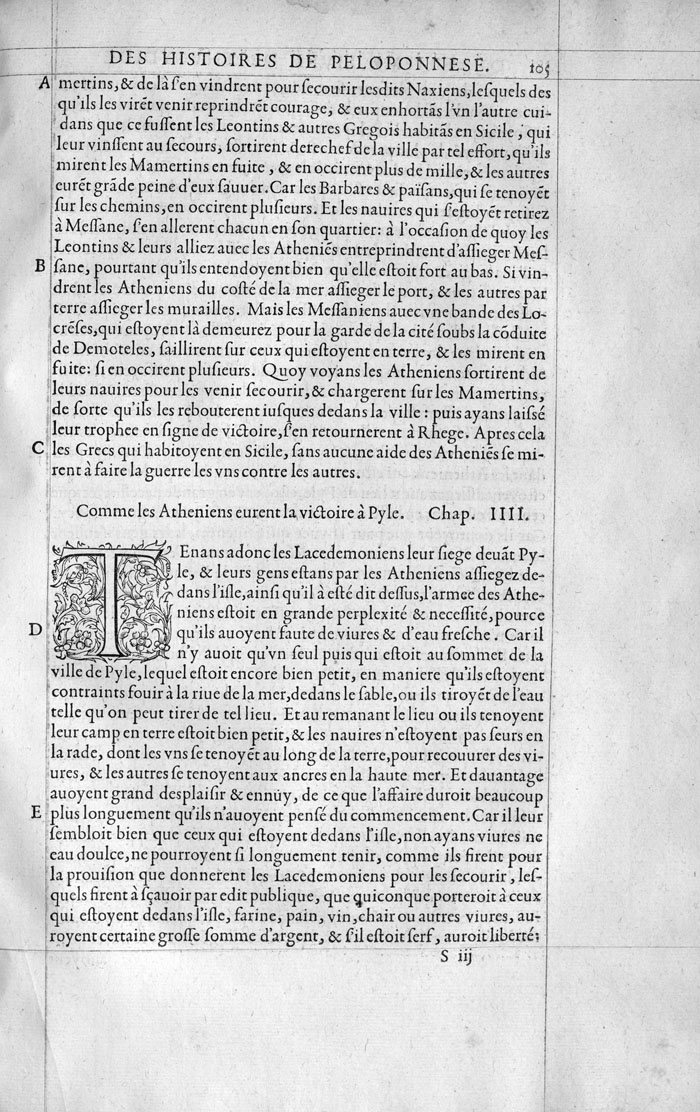 DES HISTOIRES DE PELOPONNESE. 105
A mertins, & de là ſ'en vindrent pour ſecourir leſdits Naxiens, leſquels des
qu'ils les virēt venir reprindrēt courage, & eux enhortās l'vn l'autre cui-
dans que ce fuſſent les Leontins & autres Gregois habitās en Sicile, qui
leur vinſſent au ſecours, ſortirent derechef de la ville par tel effort, qu'ils
mirent les Mamertins en fuite, & en occirent plus de mille, & les autres
eurēt grāde peine d'eux ſauuer. Car les Barbares & païſans, qui ſe tenoyēt
ſur les chemins, en occirent pluſieurs. Et les nauires qui ſ'eſtoyēt retirez
à Meſſane, ſ'en allerent chacun en ſon quartier: à l'occaſion de quoy les
Leontins & leurs alliez auec les Atheniēs entreprindrent d'aſſieger Meſ-
B ſane, pourtant qu'ils entendoyent bien qu'elle eſtoit fort au bas. Si vin-
drent les Atheniens du coſté de la mer aſſieger le port, & les autres par
terre aſſieger les murailles. Mais les Meſſaniens auec vne bande des Lo-
crēſes, qui eſtoyent là demeurez pour la garde de la cité ſoubs la cōduite
de Demoteles, ſaillirent ſur ceux qui eſtoyent en terre, & les mirent en
fuite: ſi en occirent pluſieurs. Quoy voyans les Atheniens ſortirent de
leurs nauires pour les venir ſecourir, & chargerent ſur les Mamertins,
de ſorte qu'ils les rebouterent iuſques dedans la ville: puis ayans laiſſé
leur trophee en ſigne de victoire, ſ'en retournerent à Rhege. Apres cela
C les Grecs qui habitoyent en Sicile, ſans aucune aide des Atheniēs ſe mi-
rent à faire la guerre les vns contre les autres.
Comme les Atheniens eurent la victoire à Pyle. Chap. IIII.
TEnans adonc les Lacedemoniens leur ſiege deuāt Py-
le, & leurs gens eſtans par les Atheniens aſſiegez de-
dans l'iſle, ainſi qu'il à eſté dit deſſus, l'armee des Athe-
niens eſtoit en grande perplexité & neceſſité, pource
D qu'ils auoyent faute de viures & d'eau freſche. Car il
n'y auoit qu'vn ſeul puis qui eſtoit au ſommet de la
ville de Pyle, lequel eſtoit encore bien petit, en maniere qu'ils eſtoyent
contraints fouir à la riue de la mer, dedans le ſable, ou ils tiroyēt de l'eau
telle qu'on peut tirer de tel lieu. Et au remanant le lieu ou ils tenoyent
leur camp en terre eſtoit bien petit, & les nauires n'eſtoyent pas ſeurs en
la rade, dont les vns ſe tenoyēt au long de la terre, pour recouurer des vi-
ures, & les autres ſe tenoyent aux ancres en la haute mer. Et dauantage
auoyent grand desplaiſir & ennuy, de ce que l'affaire duroit beaucoup
E plus longuement qu'ils n'auoyent penſé du commencement. Car il leur
ſembloit bien que ceux qui eſtoyent dedans l'iſle, non ayans viures ne
eau doulce, ne pourroyent ſi longuement tenir, comme ils firent pour
la prouiſion que donnerent les Lacedemoniens pour les ſecourir, leſ-
quels firent à ſçauoir par edit publique, que quiconque porteroit à ceux
qui eſtoyent dedans l'iſle, farine, pain, vin, chair ou autres viures, au-
royent certaine groſſe ſomme d'argent, & ſ'il eſtoit ſerf, auroit liberté:
S iij